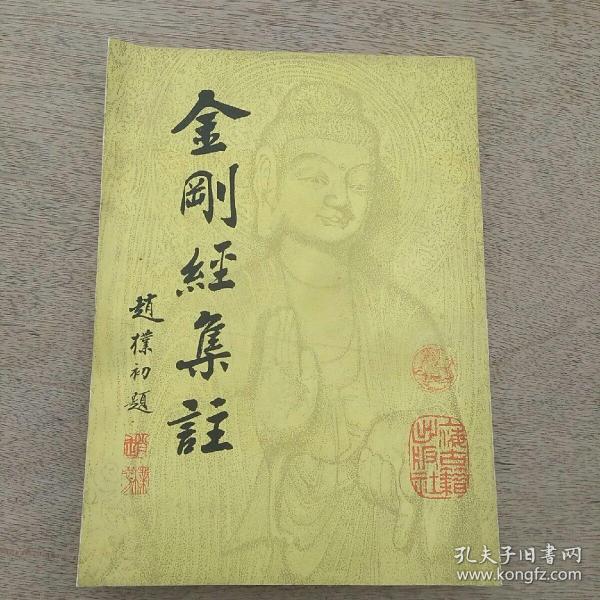 金剛經集註
趙樸初題
上海古籍
出版社
孔夫子旧书网
www.kongfz.com